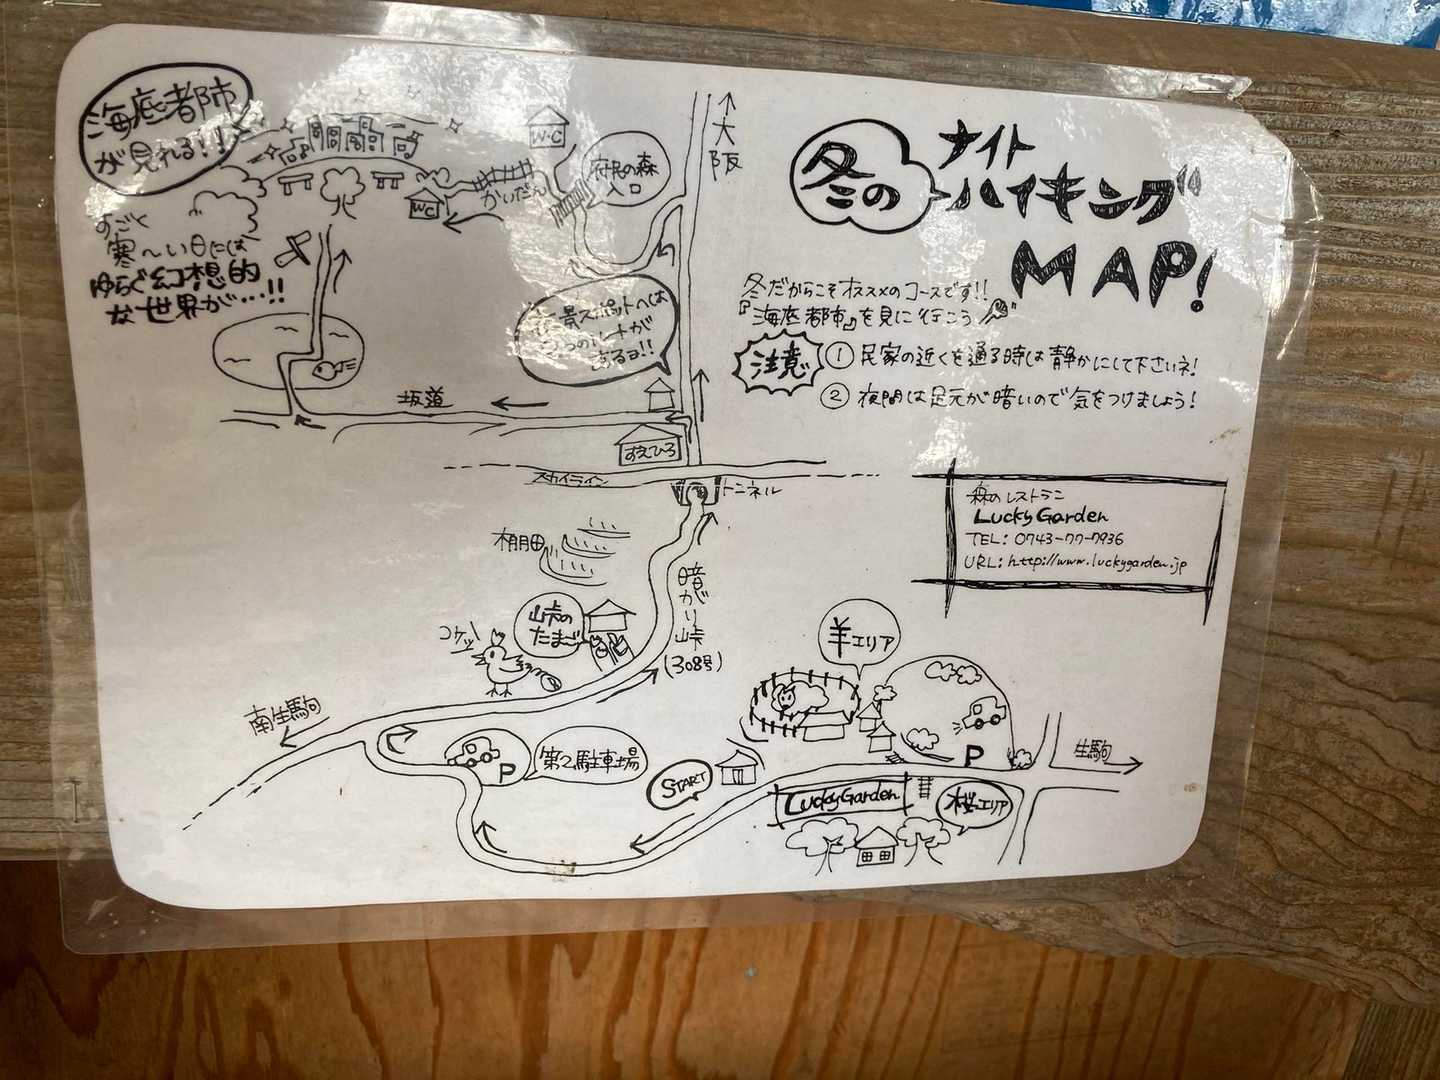 海底都市
が見れる!!
すごく
寒〜い日には
ゆらぐ幻想的
な世界が…!!
W.C
WC
かいだん
府民の森
入口
大阪
冬の
ナイト
ハイキング
MAP!
冬だからこそオススメのコースです!!
『海底都市』を見に行こう
注意
① 民家の近くを通る時は静かにして下さいネ!
② 夜間は足元が暗いので気をつけましょう!
夜景スポットへは
2つのルートが
あるヨ!!
坂道
すえひろ
スカイライン
トンネル
森のレストラン
Lucky Garden
TEL: 0743-77-7936
URL: http://www.luckygarden.jp
棚田
暗がり峠
(308号)
峠の
たまご
コケッ!
羊エリア
南生駒
第2駐車場
P
START
P
生駒
Lucky Garden
桜エリア